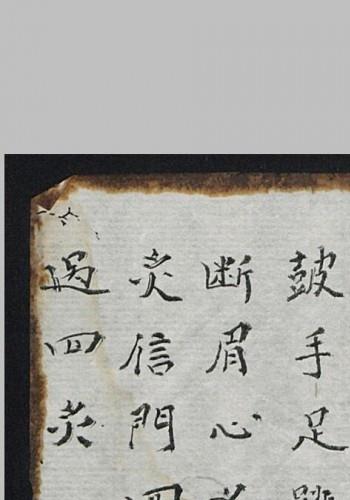 皷手足
断眉心
灸信門
過四灸